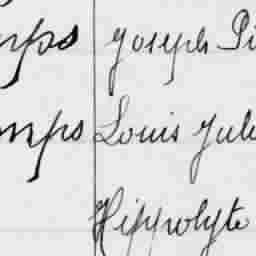 mps Joseph Pi
mps Louis Jule
Hippolyte